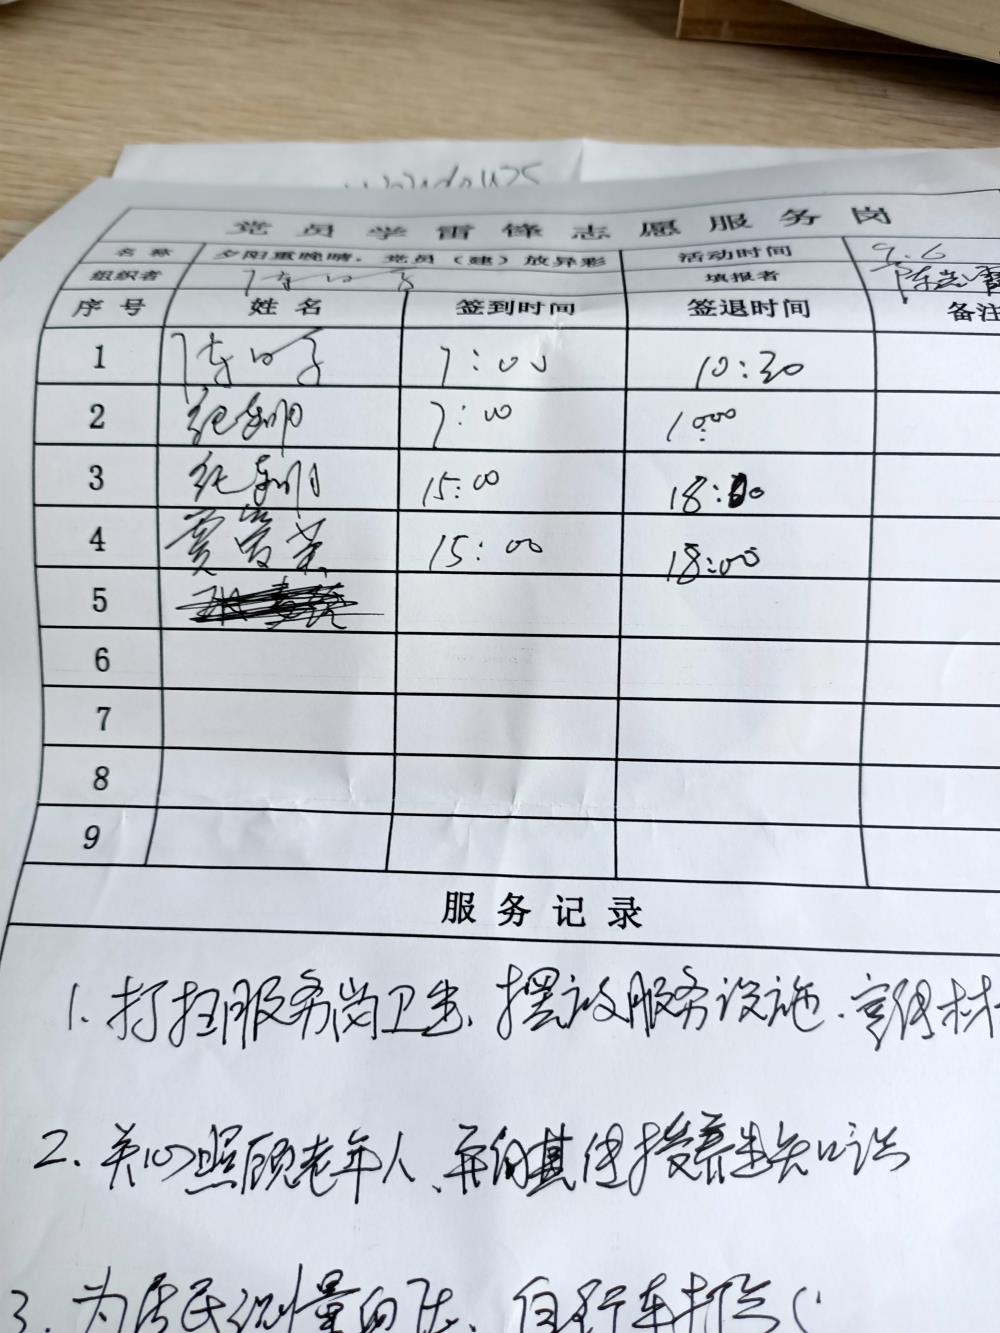 党员学雷锋志愿服务岗
名称 夕阳重晚晴,党员(建)放异彩 活动时间 9.6
组织者 填报者 陈
序号 姓名 签到时间 签退时间 备注
1 7:00 10:30
2 纪 7:00 10:00
3 纪 15:00 18:00
4 贾 15:00 18:00
5
6
7
8
9
服务记录
1.打扫服务岗卫生、摆放服务设施、宣传材
2.关心照顾老年人、并向其传授养生知识
3.为居民测量血压、自行车打气(